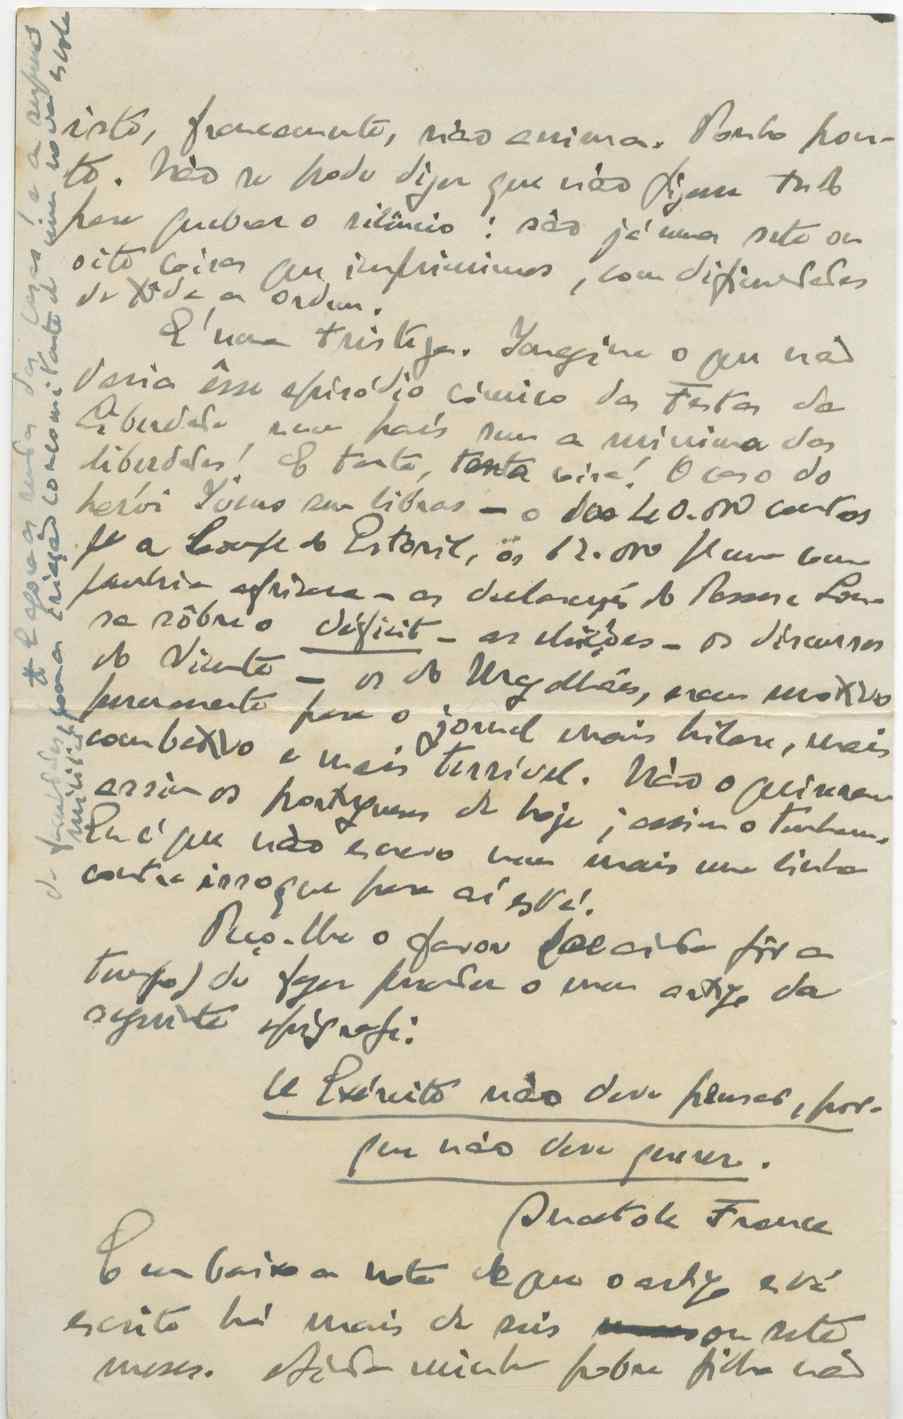 isto, francamente, não anima. Ponho pon-
to. Não se pode dizer que não fizesse tudo
para quebrar o silêncio: são já umas sete ou
oito coisas que imprimimos, com dificuldades
de tôda a ordem.
É uma tristeza. Imagine o que não
daria êsse episódio cómico das Festas da
Liberdade num país sem a minima das
liberdades! E tanta, tanta coisa! O caso do
herói em libras – o dos 40.000 contos
pª a do Estoril, os 12.000 pª uma com
panhia – as declarações do
sa sôbre o deficit – as eleições – os discursos
do Vicente – os do Magalhães, eram motivos
permanente para o jornal mais hilare, mais
combativo e mais terrível. Não o quiseram
assim os portugueses de hoje; assim o tenham.
Eu é que não escrevo nem mais uma linha
contra isso que para aí está.
Peço-lhe o favor (se ainda fôr a
tempo) de fazer preceder o meu artigo da
seguinte epígrafe:
O Exército não deve pensar, por-
que não deve querer.
Anatole France
E em baixo a nota de que o artigo está
escrito há mais de seis ou sete
meses. Ainda minha pobre filha não
* E agora as rendas das casas! e a
de para a criação concomitante de uma nova escola
militar